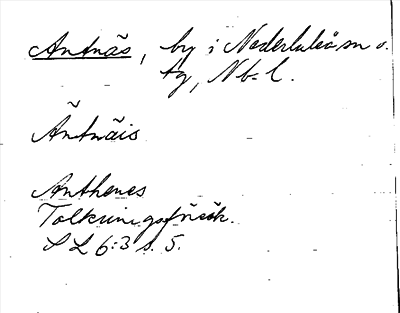 Antnäs, by i Nederluleå sn o.
tg, Nb. l.
Äntnäis
Anthenes
Tolkningsförsök.
SL 6:3 s. 5.